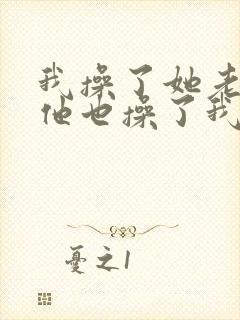 我操了她老
他也操了我
憂之1